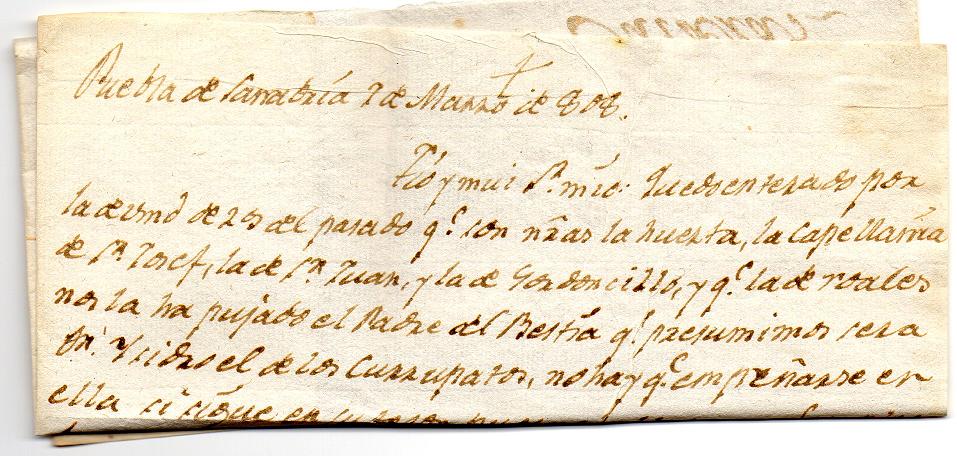 Puebla de Sanabria 7 de Marzo de 808.
Tio y mui Sr. mio: Quedo enterado por
la de vmd de 29 del pasado qe. son nras la huerta, la capellania
de Sn. Josef, la de Sn. Juan, y la de Gordoncillo, y qe. la de roales
nos la ha pujado el Padre del Bestia qe. presumimos sera
Dn. Ysidro el de los Currupatos, no hay qe. empeñarse en
ella si sigue en